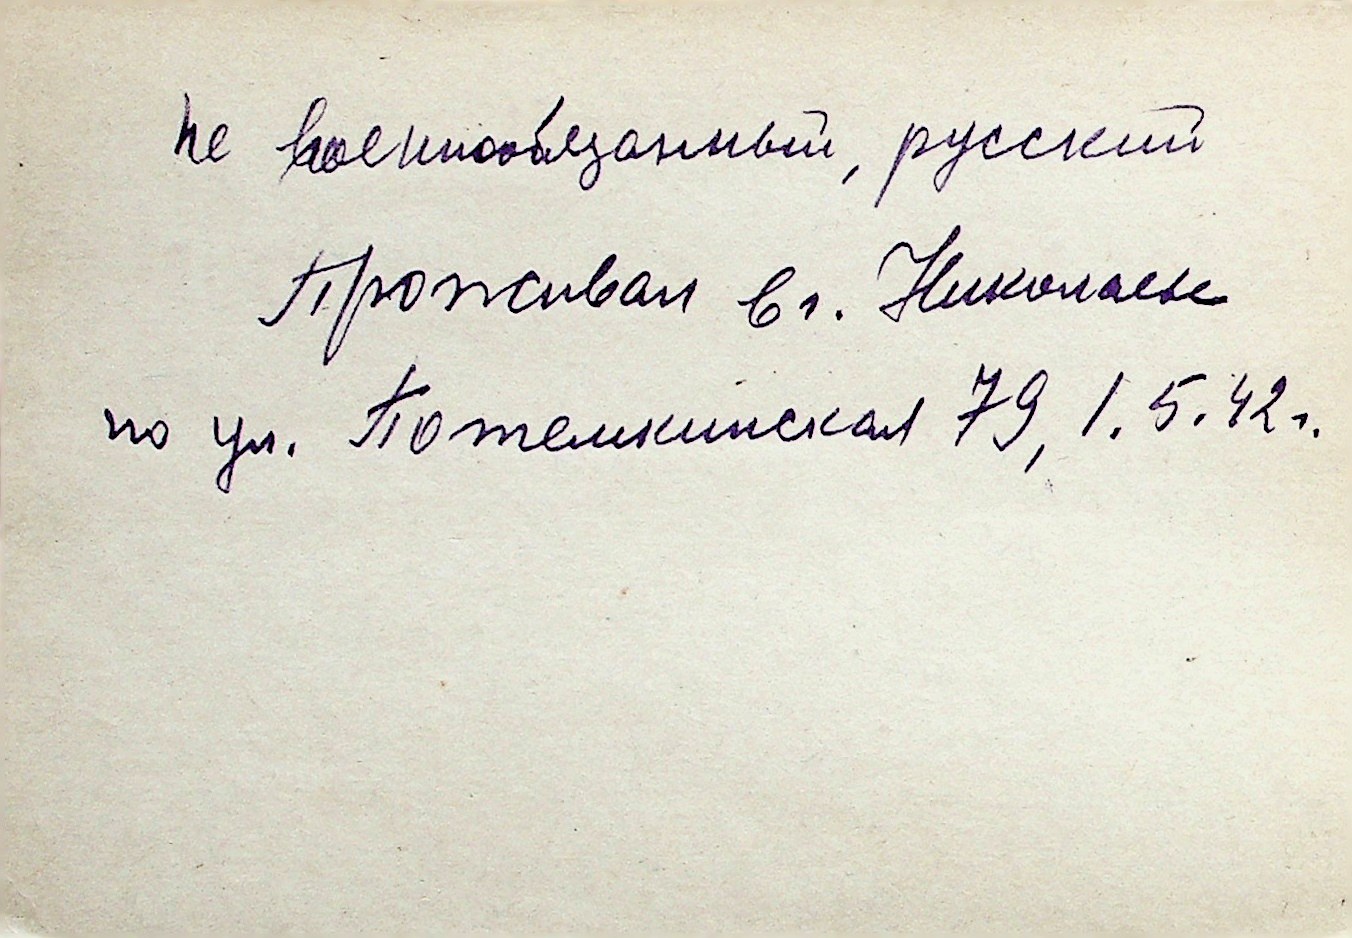 не военнообязанный, русский
Проживал в г. Николаеве
по ул. Потемкинская 79, 1.5.42г.